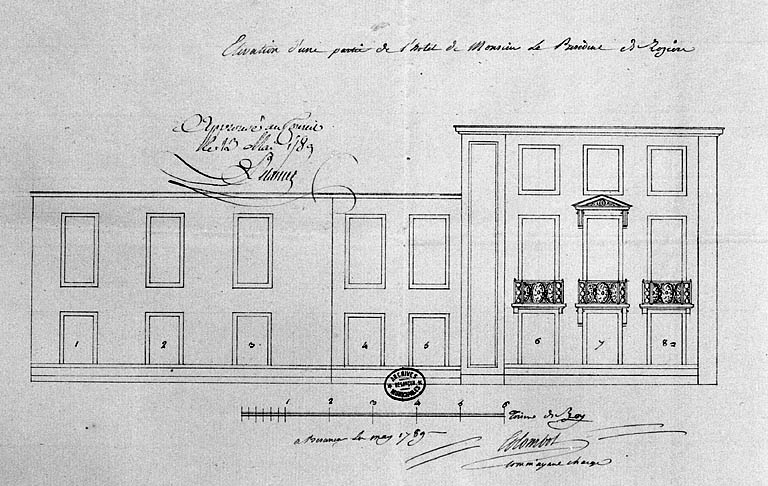 Elevation d'une partie de l'hotel de Monsieur Le President de
Approuvé au
le 12 Mai 1789
1
2
3
4
5
6
7
8
ARCHIVES
BESANÇON
MUNICIPALES
1 2 3 4 5 6
Toises de Roy
a Besançon le may 1789
Colombot
comm ayant charge